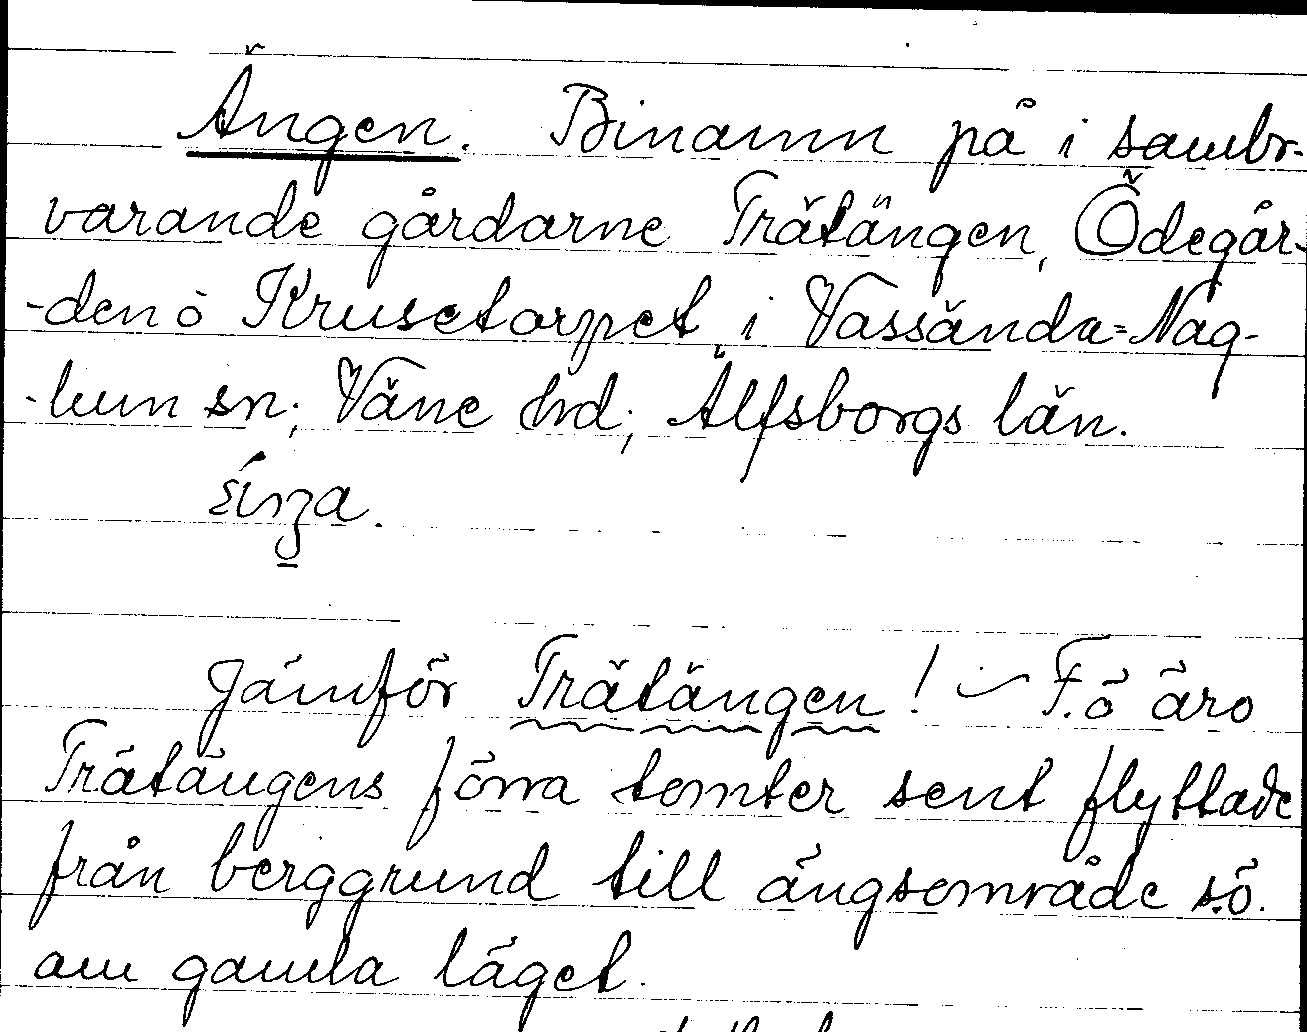 Ängen. Binamn på i sambr-
varande gårdarne Trätängen, Ödegår-
-den ö Krusetorpet i Vassända=Nag-
-lum sn; Väne hd; Älfsborgs län.
Jämför Trätängen! – F.ö äro
Trätängens förra tomter sent flyttade
från berggrund till ängsområde s.ö.
om gamla läget.